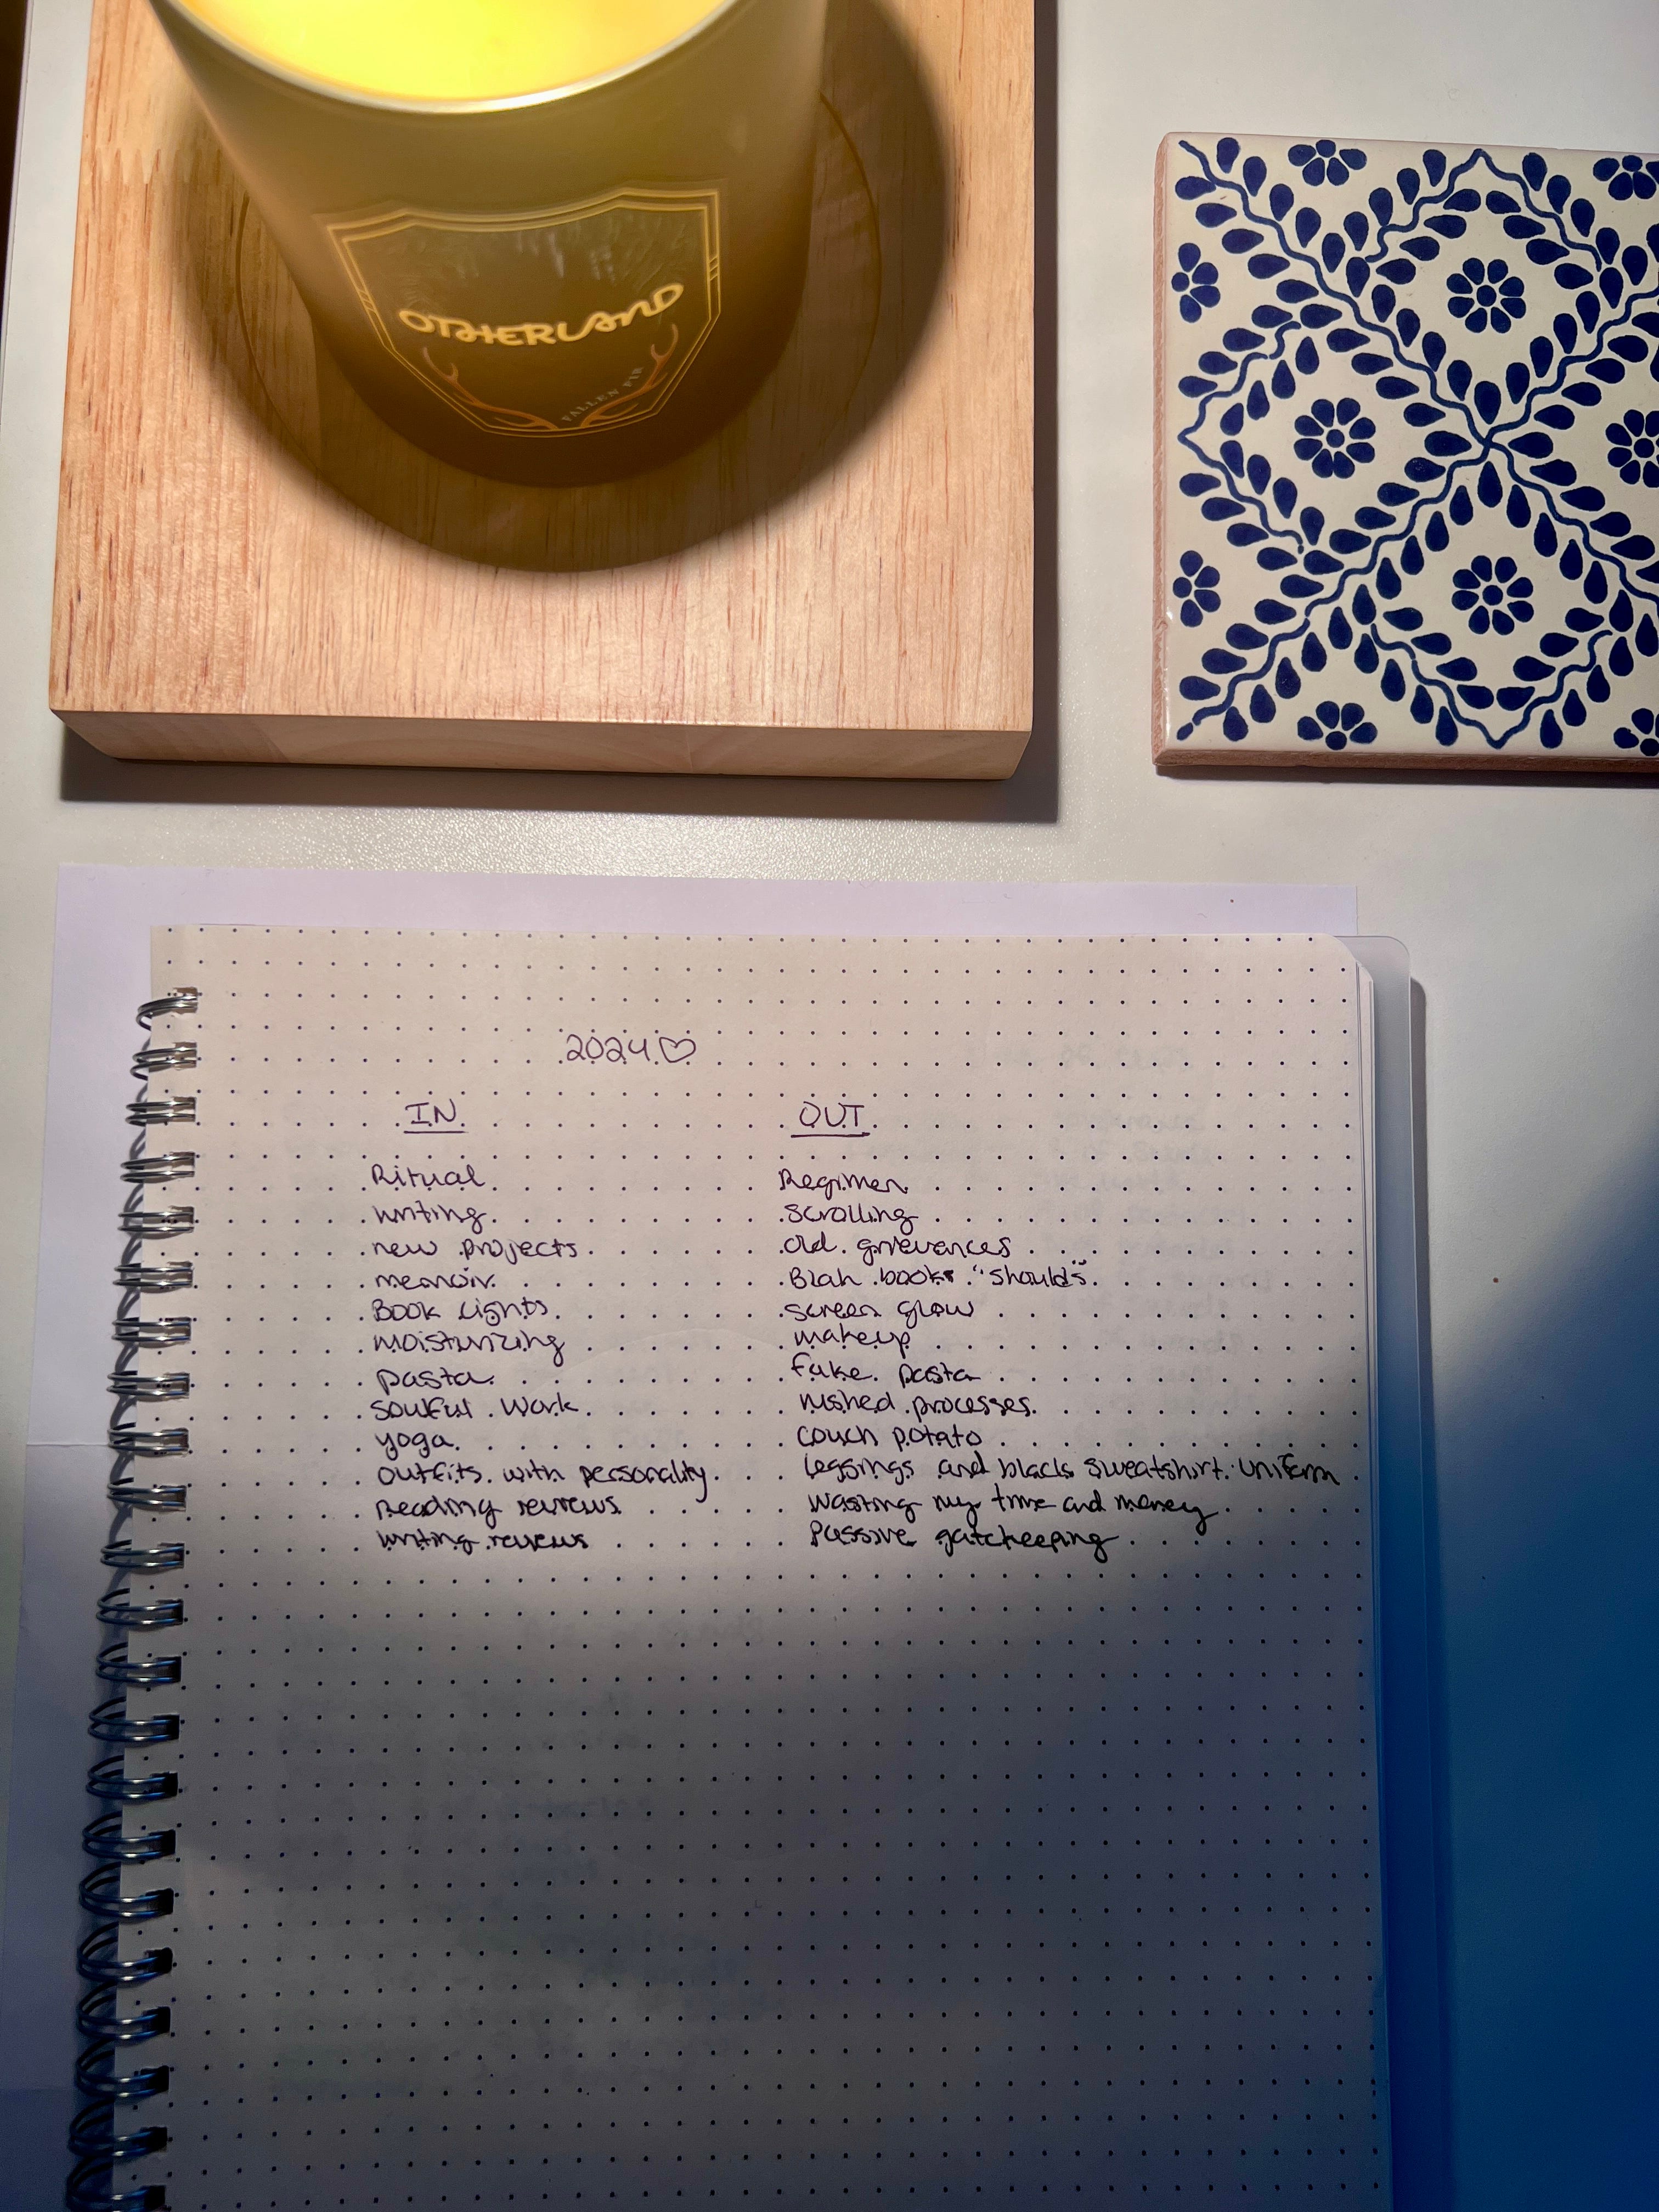 OTHERLAND
FALLEN FIR
2024♡
IN OUT
Ritual Regimen
writing scrolling
new projects old grievances
memoir Blah books "should's"
Book Lights screen glow
moisturizing makeup
pasta fake pasta
soulful work rushed processes
yoga couch potato
outfits with personality leggings and black sweatshirt uniform
Reading reviews wasting my time and money
writing reviews Passive gatekeeping